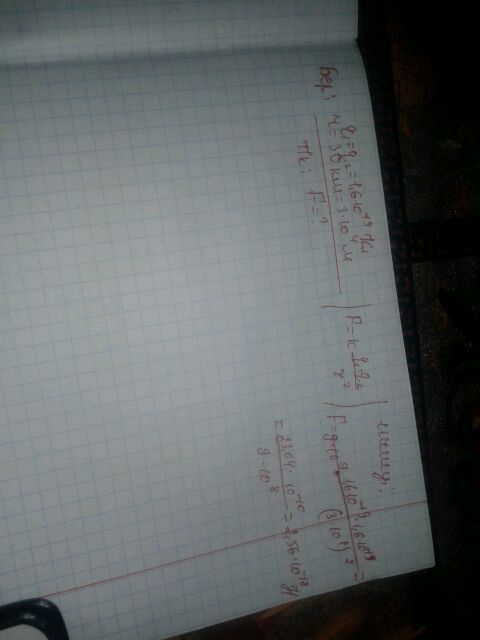 Бер: q₁=q₂=1,6·10⁻¹⁹ Кл
r=30 км=3·10⁴ м
Т/к: F=?
F=k q₁q₂/r²
шешуі:
F=9·10⁹ · 1,6·10⁻¹⁹·1,6·10⁻¹⁹/(3·10⁴)² =
= 23,04·10⁻¹⁰/9·10⁸ = 2,56·10⁻¹⁸ Н